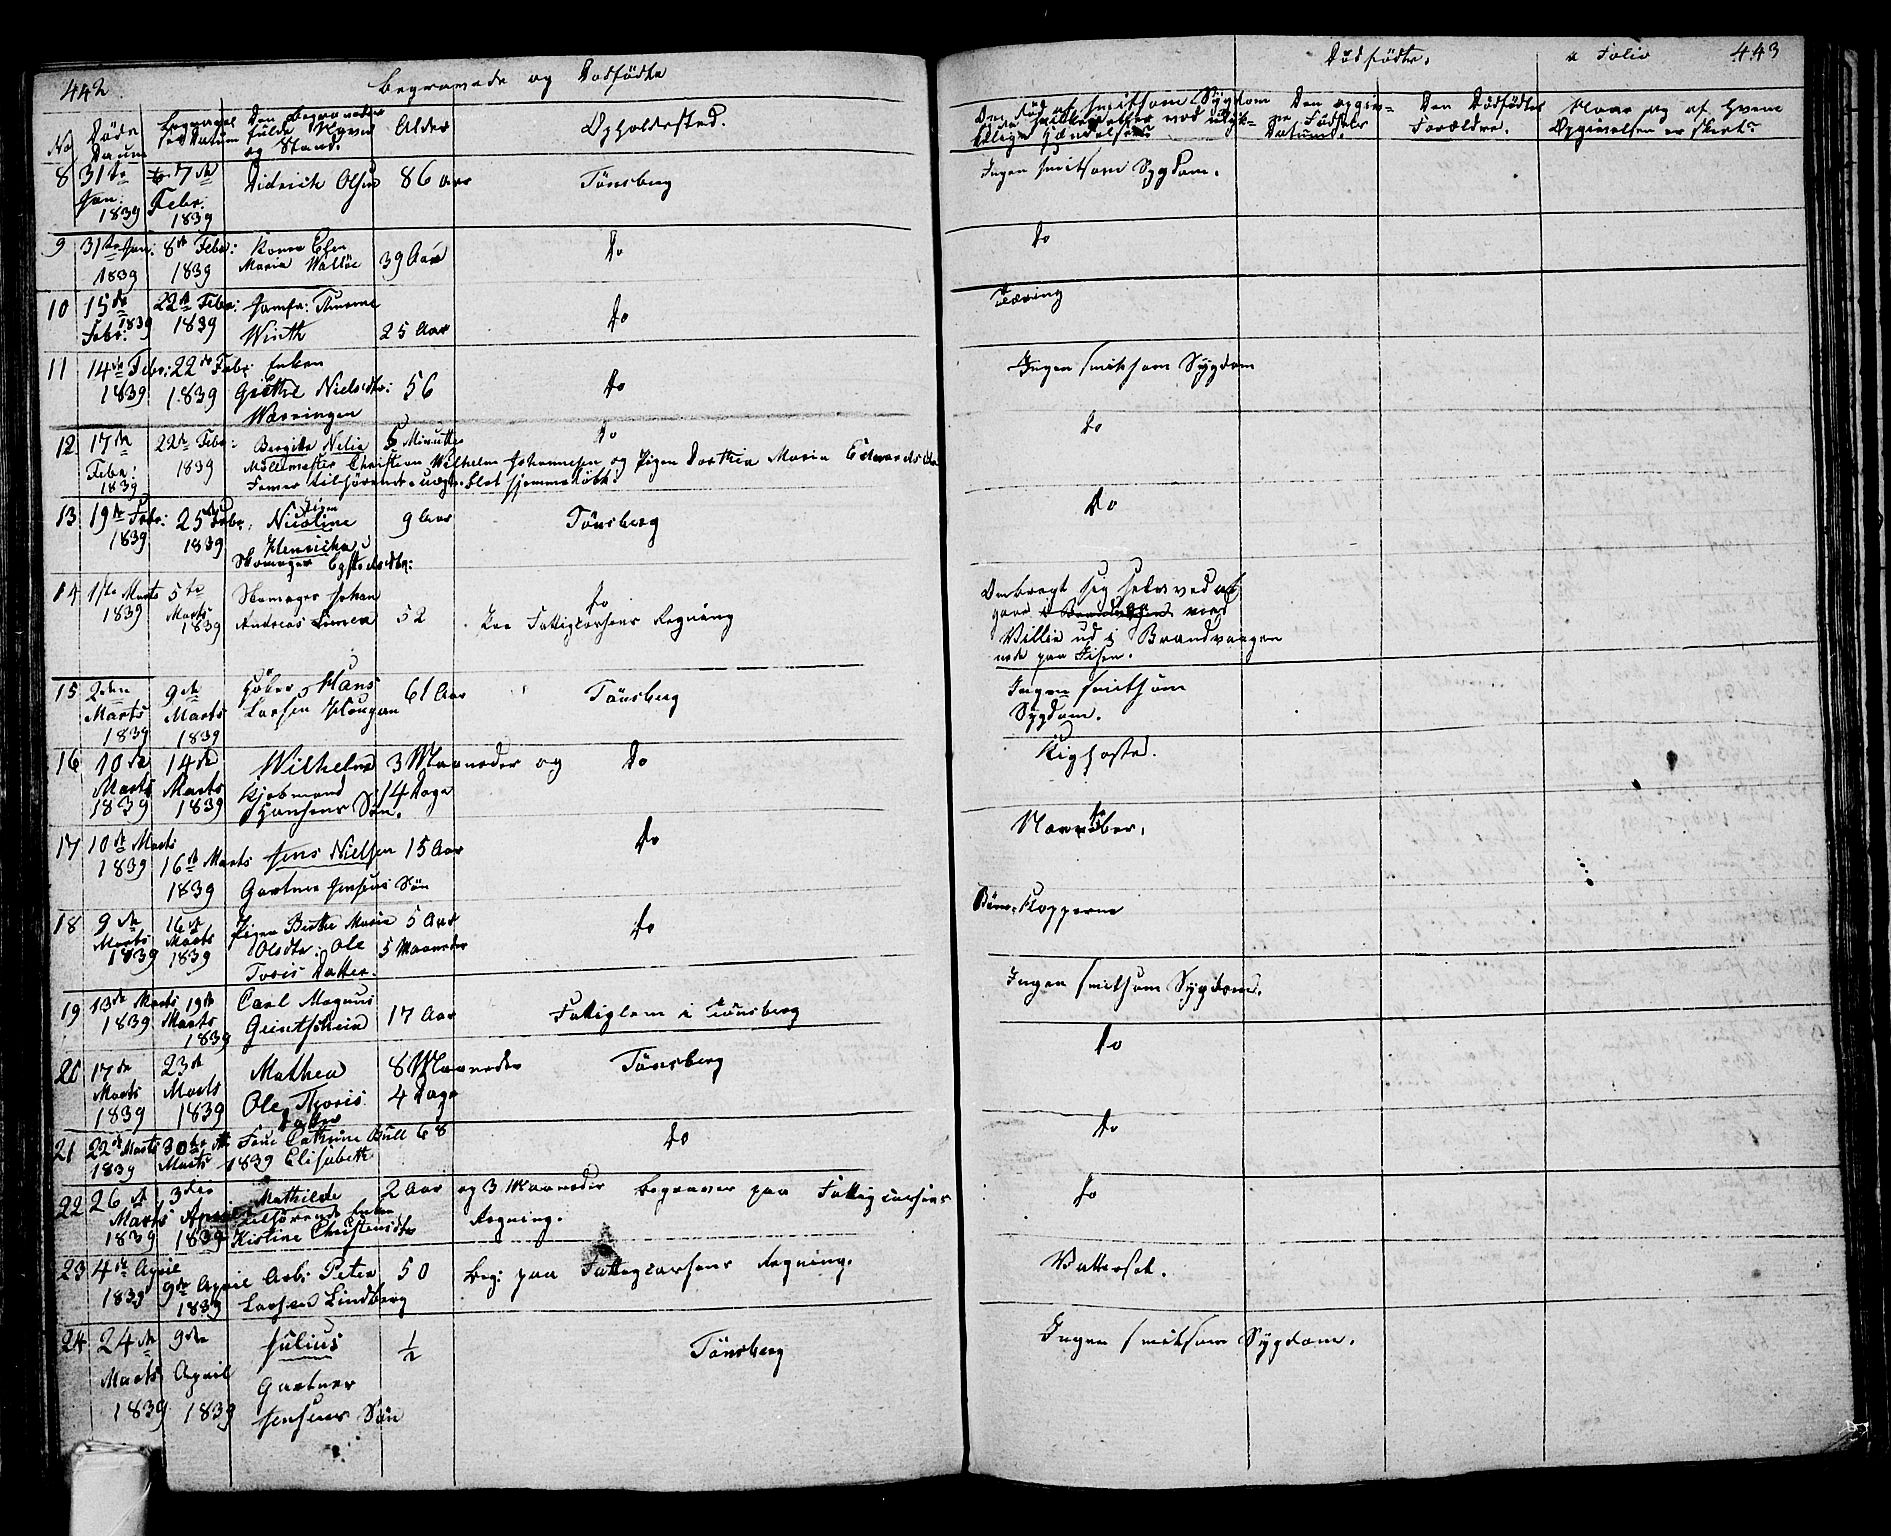 442
Begravede og Dødfødte
No
Døds
Datum
Begravel
ses Datum
Den Begravedes
fulde Navn
og Stand.
Alder
Opholdssted.
8 31te Jan: 1839
7de Febr: 1839
Didrich Olsen
86 Aar
Tönsberg
9 31te Jan: 1839
8de Febr: 1839
Konen Elen
Maria
39 Aar
Do
10 15de Febr: 1839
22de Febr: 1839
Jomfr: Thrine
Winth
25 Aar
Do
11 14de Febr: 1839
22de Febr: 1839
Enken
Grethe Nielsdtr:
Wærringen
56
Do
12 17de Febr: 1839
22de Febr: 1839
Bergitte Nelia
5 Minutter
Do
Möllemester Christian Wilhelm Johannesen og Pigen Dorthea Maria Edwardsdr
tilhörende uægte blot hjemmedöbt.
13 19de Febr: 1839
25de Febr. 1839
Pigen
Nicoline
Henricha
Skomager
9 Aar
Tönsberg
14 1ste Marts 1839
5te Marts 1839
Skomager Johan
Andreas
52
Do
Paa Fattigcassens Regning
15 2den Marts 1839
9de Marts 1839
Hans
Larsen Hougan
61 Aar
Tönsberg
16 10de Marts 1839
14de Marts 1839
Wilhelm
Kjøbmand
Hansens Søn.
3 Maaneder og
14 Dage
Do
17 10de Marts 1839
16de Marts 1839
Jens Nielsen
Gartner Jensens Søn
15 Aar
Do
18 9de Marts 1839
16de Marts 1839
Pigen Berthe Marie
Olsdtr: Ole
Toris Datter.
5 Aar
5 Maaneder
Do
19 13de Marts 1839
19de Marts 1839
Carl Magnus
17 Aar
Fattiglem i Tönsberg
20 17de Marts 1839
23de Marts 1839
Mathea
Ole Thoris
Datter
8 Maaneder
4 Dage
Tönsberg
21 22de Marts 1839
30te Marts 1839
Cathrine Bull
Elisabeth
68
Do
22 26de Marts 1839
3die April 1839
Mathilde
tilhörende Enken
Kistine Christensdtr
2 Aar og 3 Maaneder begraver paa Fattigcassens
Regning.
23 4de April 1839
9de April 1839
Arb: Peter
Larsen Lindberg
50
beg: paa Fattigcassens Regning.
24 24de Marts 1839
9de April 1839
Julius
Gartner
Jensens Søn
1/2
Tönsberg
Dødfødte.
a Folio
443
Den Død af smitsom Sygdom
Den opgiv-
ne Fødsels
Datum.
Den Dödfödtes
Forældre.
Naar og af hvem
Opgivelsen er skeet.
Ingen smitsom Sygdom.
Do
Tæring
Ingen smitsom Sygdom
Do
Do
Ombragt sig selv ved at
gaae ved
Villie ud i Brandvaagen
ude paa Isen.
Ingen smitsom
Sygdom.
Kighoste.
Nervefeber.
Do
Börne-Kopperne
Ingen smitsom Sygdom.
Do
Do
Do
Vattersot.
Ingen smitsom Sygdom.